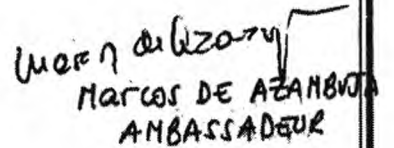 MARCOS DE AZAMBUJA
AMBASSADEUR